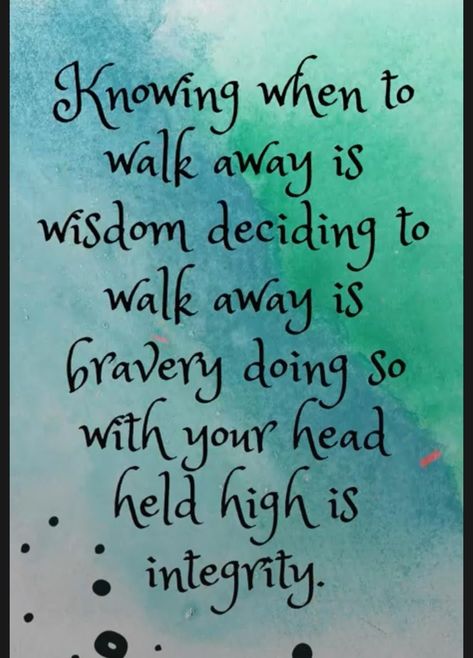 Knowing when to
walk away is
wisdom deciding to
walk away is
bravery doing so
with your head
held high is
integrity.